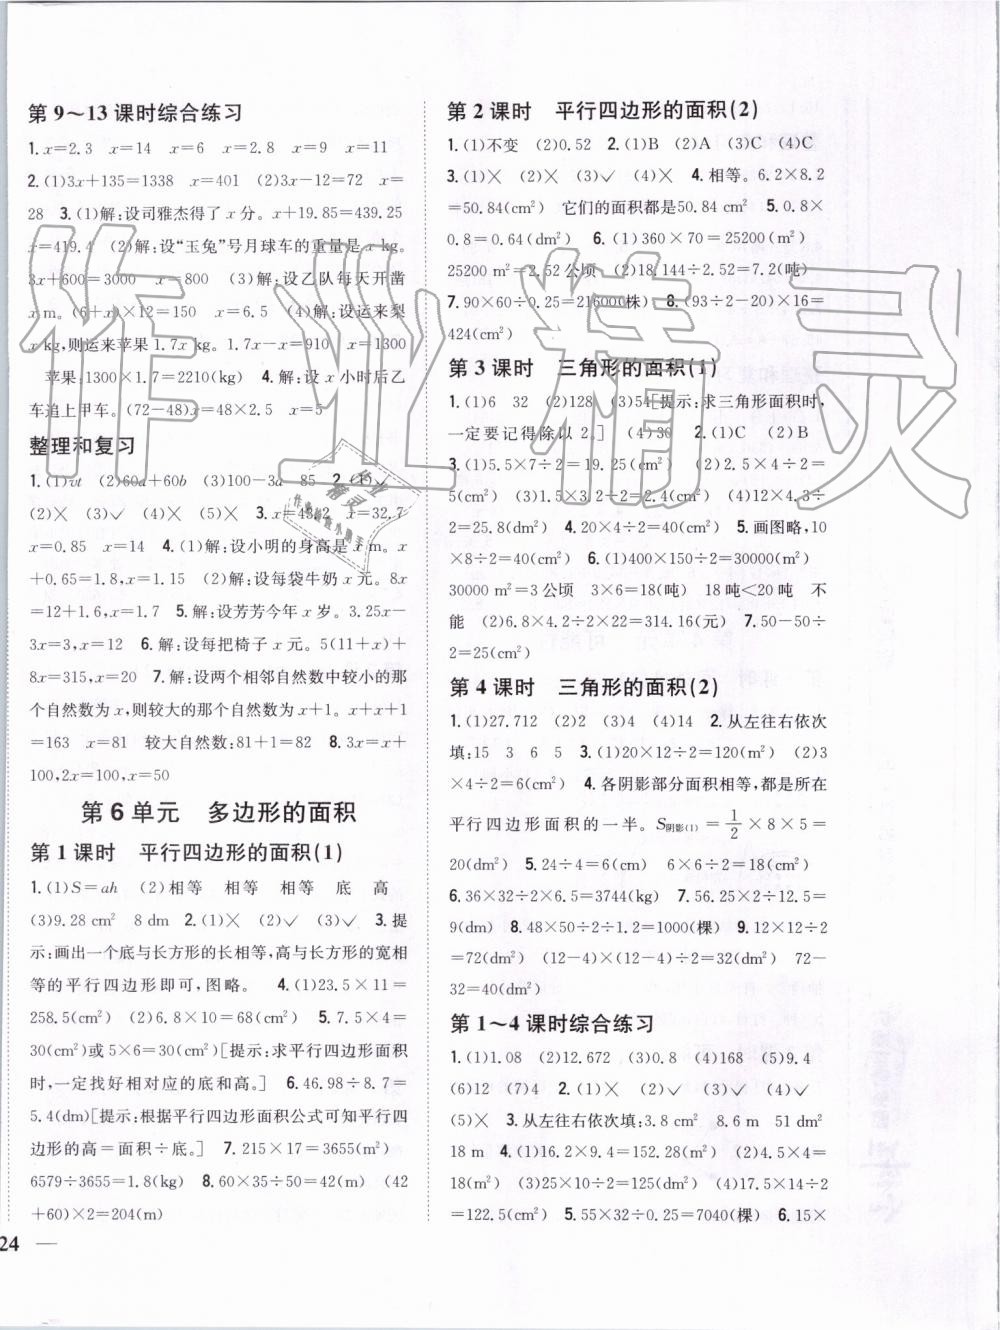 第9～13课时综合练习
1.x=2.3 x=14 x=6 x=2.8 x=9 x=11
2.(1)3x+135=1338 x=401 (2)3x-12=72 x=
28 3.(1)解:设司雅杰得了x分。x+19.85=439.25
x=419.4 (2)解:设“玉兔”号月球车的重量是x kg。
3x+600=3000 x=800 (3)解:设乙队每天开凿
x m。(6+x)×12=150 x=6.5 (4)解:设运来梨
x kg,则运来苹果1.7x kg。1.7x-x=910 x=1300
苹果:1300×1.7=2210(kg) 4.解:设x小时后乙
车追上甲车。(72-48)x=48×2.5 x=5
整理和复习
1.(1)vt (2)60a+60b (3)100-3a 85 2.(1)✓
(2)× (3)✓ (4)× (5)× 3.x=43.2 x=32.7
x=0.85 x=14 4.(1)解:设小明的身高是x m。x
+0.65=1.8,x=1.15 (2)解:设每袋牛奶x元。8x
=12+1.6,x=1.7 5.解:设芳芳今年x岁。3.25x-
3x=3,x=12 6.解:设每把椅子x元。5(11+x)+
8x=315,x=20 7.解:设两个相邻自然数中较小的那
个自然数为x,则较大的那个自然数为x+1。x+x+1
=163 x=81 较大自然数:81+1=82 8.3x=x+
100,2x=100,x=50
第6单元 多边形的面积
第1课时 平行四边形的面积(1)
1.(1)S=ah (2)相等 相等 相等 底 高
(3)9.28 cm² 8 dm 2.(1)× (2)✓ (3)✓ 3.提
示:画出一个底与长方形的长相等,高与长方形的宽相
等的平行四边形即可,图略。 4.(1)23.5×11=
258.5(cm²) (2)6.8×10=68(cm²) 5.7.5×4=
30(cm²)或5×6=30(cm²)[提示:求平行四边形面积
时,一定找好相对应的底和高。] 6.46.98÷8.7=
5.4(dm)[提示:根据平行四边形面积公式可知平行四
边形的高=面积÷底。] 7.215×17=3655(m²)
6579÷3655=1.8(kg) 8.60×35÷50=42(m) (42
+60)×2=204(m)
24
第2课时 平行四边形的面积(2)
1.(1)不变 (2)0.52 2.(1)B (2)A (3)C (4)C
3.(1)× (2)× (3)✓ (4)× 4.相等。6.2×8.2
=50.84(cm²) 它们的面积都是50.84 cm² 5.0.8×
0.8=0.64(dm²) 6.(1)360×70=25200(m²)
25200 m²=2.52公顷 (2)18.144÷2.52=7.2(吨)
7.90×60÷0.25=216000(株) 8.(93÷2-20)×16=
424(cm²)
第3课时 三角形的面积(1)
1.(1)6 32 (2)128 (3)54[提示:求三角形面积时,
一定要记得除以2。] (4)36 2.(1)C (2)B
3.(1)5.5×7÷2=19.25(cm²) (2)2.5×4÷2=
5(cm²) (3)1.5×3.2÷2=2.4(cm²) (4)12×4.3÷
2=25.8(dm²) 4.20×4÷2=40(cm²) 5.画图略,10
×8÷2=40(cm²) 6.(1)400×150÷2=30000(m²)
30000 m²=3公顷 3×6=18(吨) 18吨<20吨 不
能 (2)6.8×4.2÷2×22=314.16(元) 7.50-50÷
2=25(cm²)
第4课时 三角形的面积(2)
1.(1)27.712 (2)2 (3)4 (4)14 2.从左往右依次
填:15 3 6 5 3.(1)20×12÷2=120(m²) (2)3
×4÷2=6(cm²) 4.各阴影部分面积相等,都是所在
平行四边形面积的一半。S阴影(1)=1/2×8×5=
20(dm²) 5.24÷4=6(cm) 6×6÷2=18(cm²)
6.36×32÷2×6.5=3744(kg) 7.56.25×2÷12.5=
9(dm) 8.48×50÷2÷1.2=1000(棵) 9.12×12÷2
=72(dm²) (12-4)×(12-4)÷2=32(dm²) 72-
32=40(dm²)
第1～4课时综合练习
1.(1)1.08 (2)12.672 (3)0.8 (4)168 (5)9.4
(6)12 (7)4 2.(1)× (2)✓ (3)✓ (4)✓
(5)× 3.从左往右依次填:3.8 cm² 8.6 m 51 dm²
18 m 4.(1)16.2×9.4=152.28(m²) (2)4.5×4=
18(m²) (3)25×10÷2=125(dm²) (4)17.5×14÷2
=122.5(cm²) 5.55×32÷0.25=7040(棵) 6.15×
作业精灵
作业
精灵